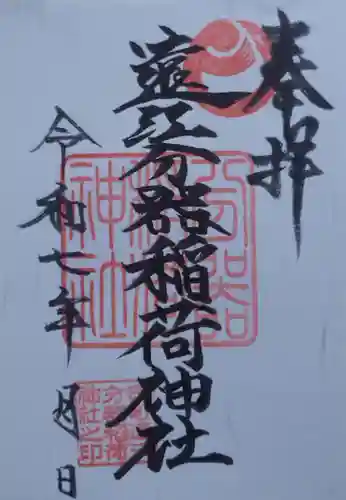 奉拝
遠江分器稲荷神社
令和七年 月 日
分器稲荷神社
分器稲荷神社之印